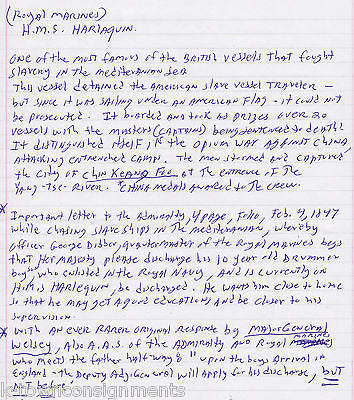 (Royal Marines)
H.M.S. HARLAQUIN.
ONE of the most famous of the British vessels that fought
slavery in the mediteranian sea
This vessel detained the American slave vessel Traveler -
but since it was sailing under an American Flag - it could not
be prosecuted. It boarded and took as prizes over 20
vessels with the masters (captains) being sentenced to death!
It distinguished itself, in the opium war against China
attacking entrenched camp. The men stormed and captured,
the City of Chin Keang Foo at the entrance of the
Yang-Tse-River. *China medals awarded to the crew.
* Important letter to the Admiralty, 4 page, Folio, Feb. 9, 1847
while chasing slave ships in the mediteranian, whereby
officer George Dibber, quartermaster of the Royal Marines begs
that Her Majesty please discharge his 10 year old Drummer
boy, who enlisted in the Royal Navy, and is currently on
H.M.S Harlequin, be discharged. He wants him close to home
so that he may get a good education, and be closer to his
supervision.
* With an EVER RARER original response by Major General
Welsey, Also A.A.G. of the Admiralty and Royal Marines
who meets the father half-way & "upon the boys arrival in
England - the Deputy Adj. General will apply for his discharge, but
not before"
ketogicconsignments